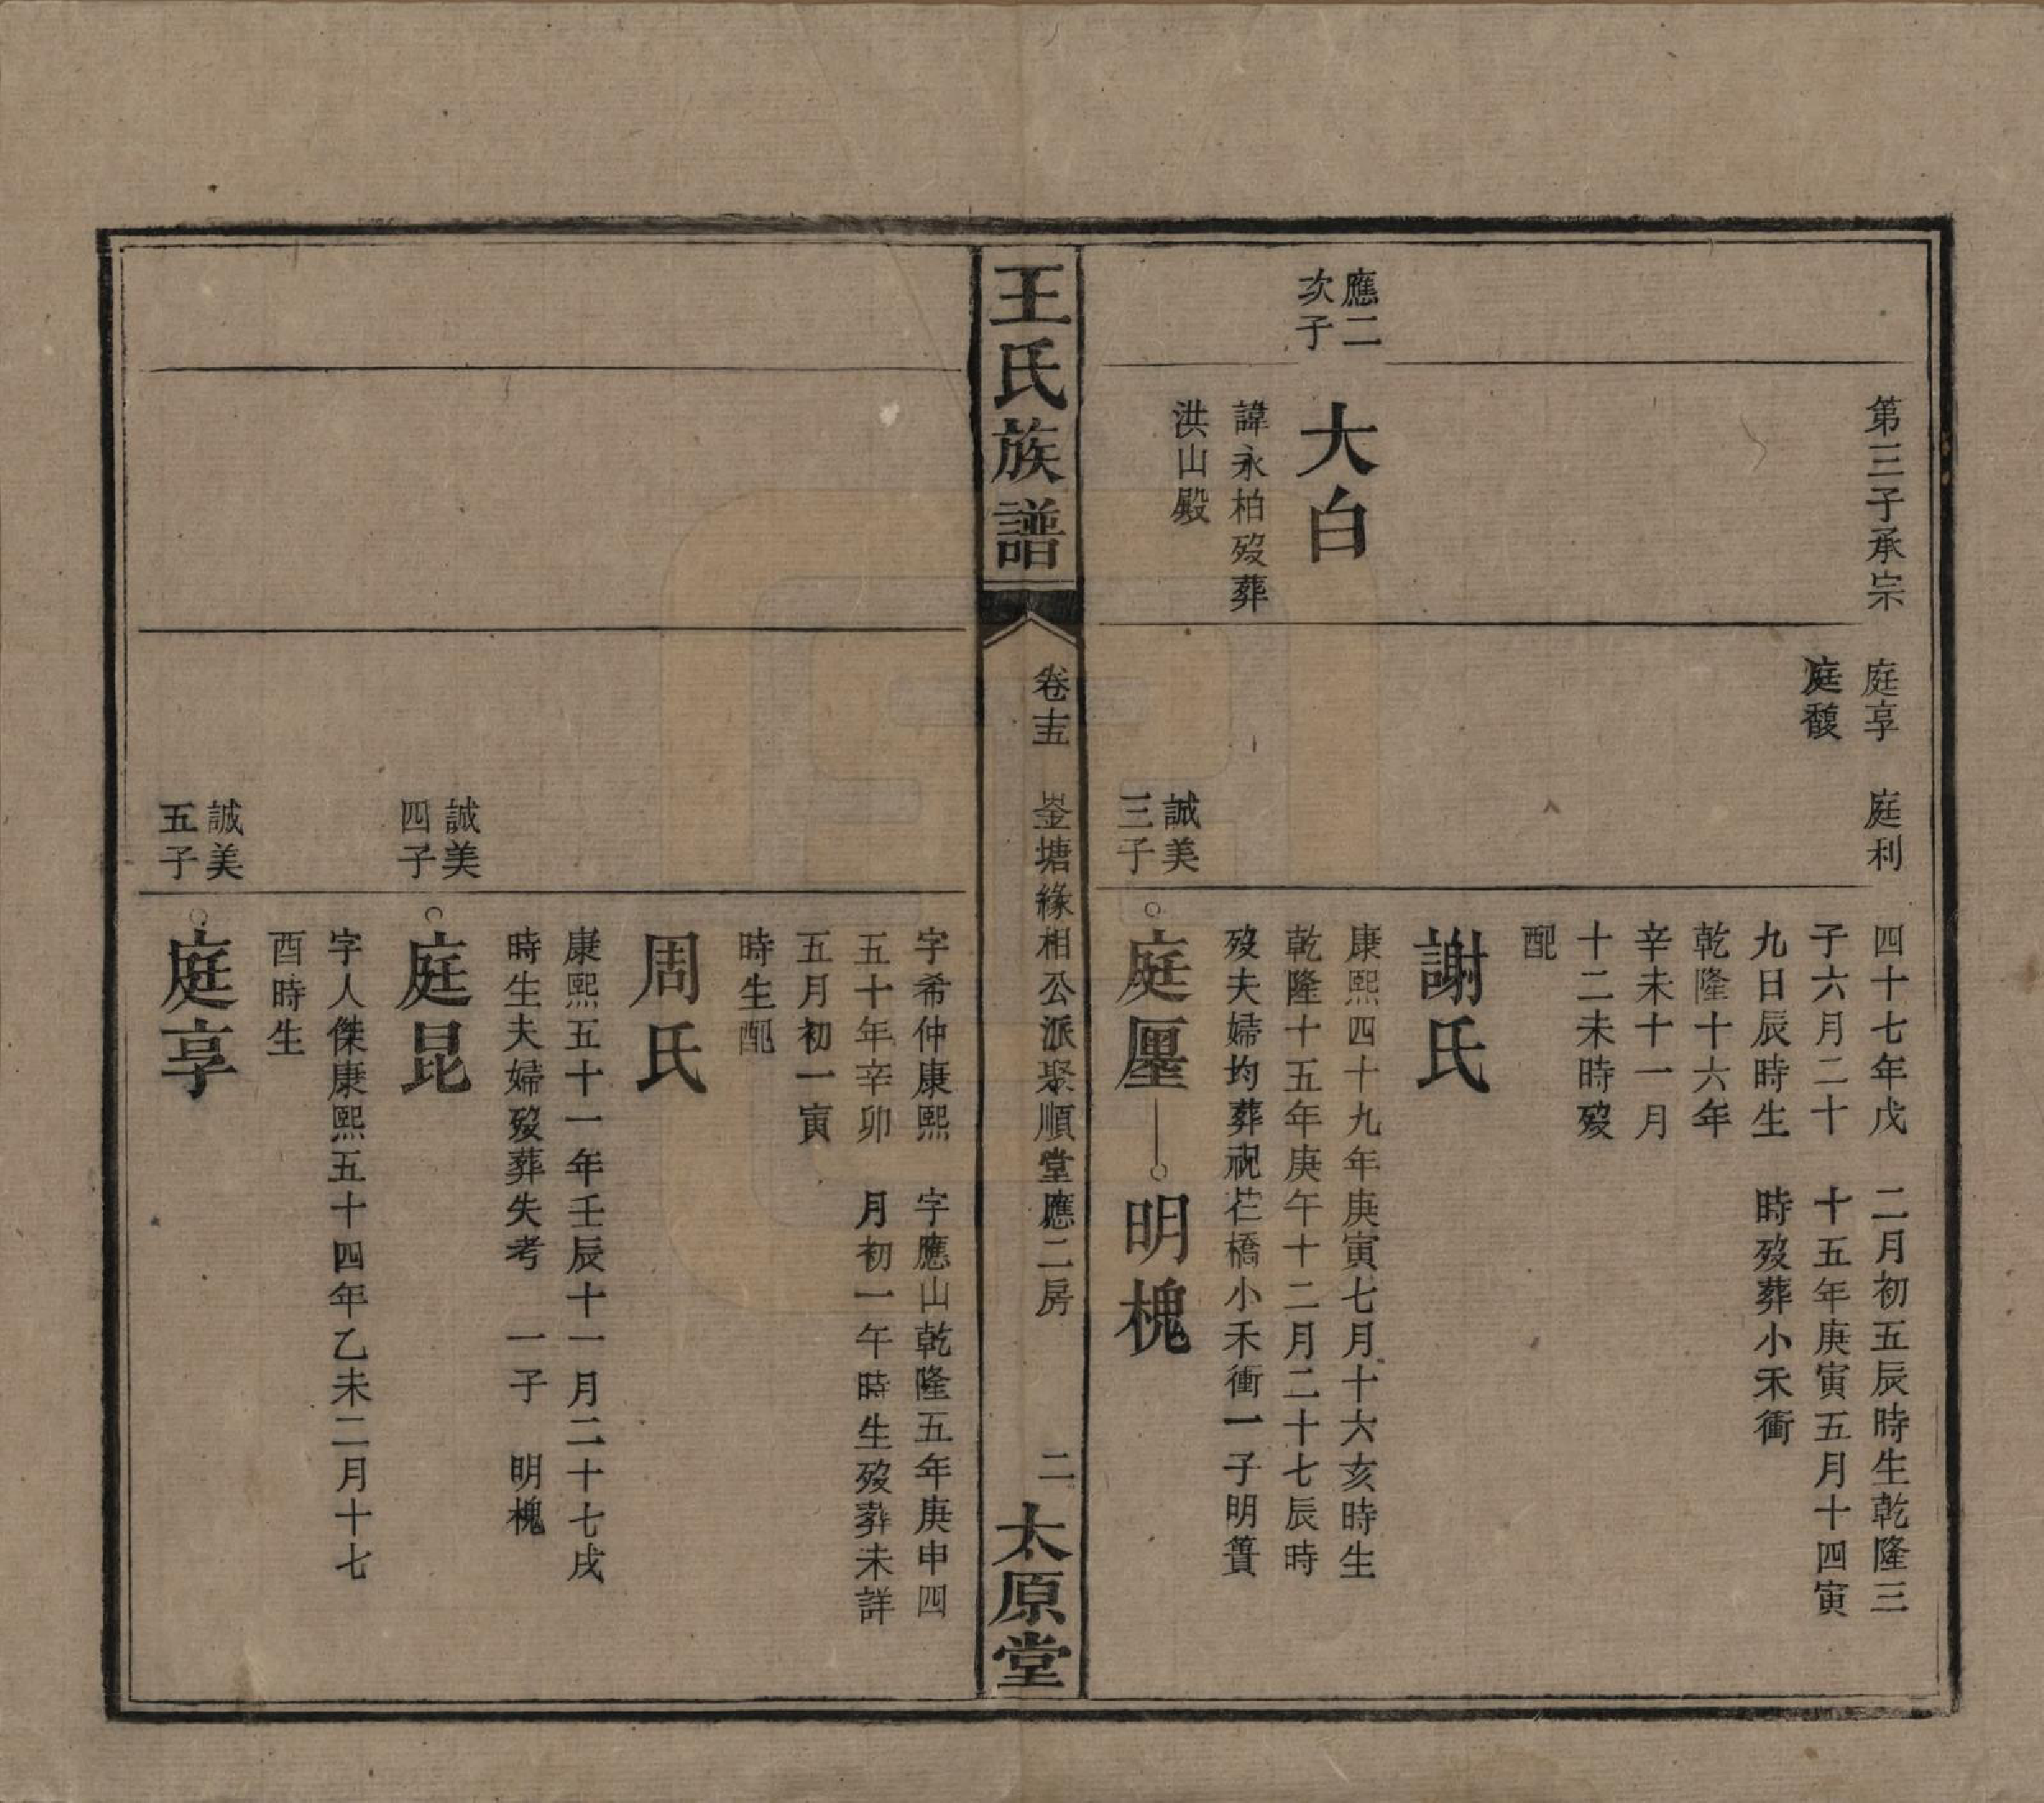 第三子承宗
應二
次子
大白
諱永柏歿葬
洪山殿
庭享　庭利
庭馥
誠美
三子
四十七年戊
子六月二十
九日辰時生
乾隆十六年
辛未十一月
十二未時歿
配
謝氏
康熙四十九年庚寅七月十六亥時生
乾隆十五年庚午十二月二十七辰時
歿夫婦均葬祝茫橋小禾衝一子明簣
庭㕓
二月初五辰時生乾隆三
十五年庚寅五月十四寅
時歿葬小禾衝
明槐
王氏族譜
卷十五
塘緣相公派聚順堂應二房
二
太原堂
誠美
四子
誠美
五子
字希仲康熙
五十年辛卯
五月初一寅
時生配
周氏
康熙五十一年壬辰十一月二十七戌
時生夫婦歿葬失考　一子　明槐
庭昆
字人傑康熙五十四年乙未二月十七
酉時生
庭享
字應山乾隆五年庚申四
月初一午時生歿葬未詳